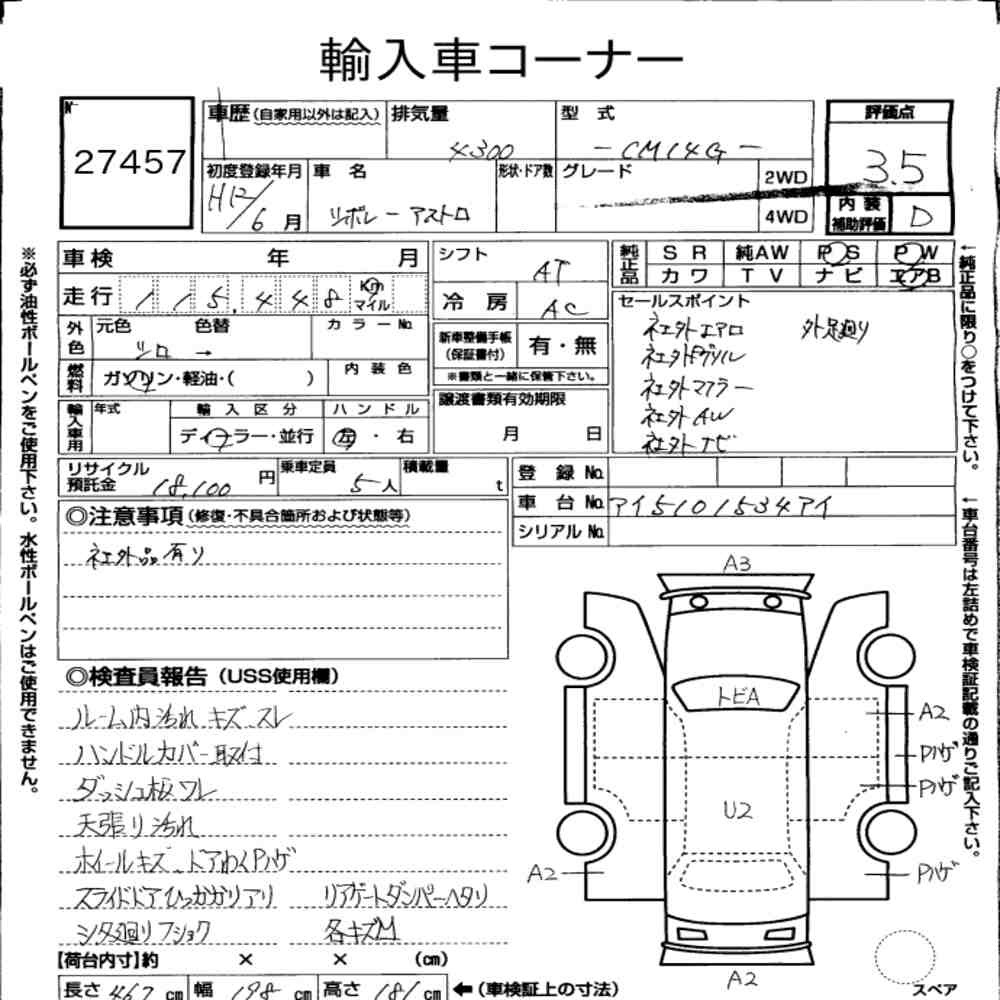 輸入車コーナー
No
27457
車歴(自家用以外は記入) 排気量 型 式 評価点
4300 - CM14G - 3.5
初度登録年月 車 名 形状・ドア数 グレード 2WD
H12/6 月 シボレーアストロ 4WD 内装補助評価 D
車検 年 月 シフト AT
純正品 S R 純AW P S P W
カワ T V ナビ エアB
走行 115,448 Km マイル
冷 房 AC
セールスポイント
社外エアロ 外足廻り
社外Fグリル
社外マフラー
社外AW
社外ナビ
外色 元色 色替 カラーNo.
シロ →
新車整備手帳(保証書付) 有・無
※書類と一緒に保管下さい。
燃料 ガソリン・軽油・( ) 内 装 色
譲渡書類有効期限
月 日
輸入車用 年式 輸 入 区 分 ハ ン ド ル
ディーラー・並行 左 ・ 右
リサイクル預託金 18,100 円 乗車定員 5人 積載量 t
登 録 No.
車 台 No. アイ5101534アイ
シリアル No.
◎注意事項(修復・不具合箇所および状態等)
社外品有り
◎検査員報告(USS使用欄)
ルーム内汚れ キズ スレ
ハンドルカバー取付
ダッシュ板ワレ
天張り汚れ
ホイールキズ、ドアわくPハゲ
スライドドアひっかかりアリ リアゲートダンパーヘタリ
シタ廻りフショク 各キズM
【荷台内寸】約 × × (cm)
長さ 467 cm 幅 198 cm 高さ 181 cm ←(車検証上の寸法)
A3
トビA
A2
Pハゲ
Pハゲ
U2
A2
Pハゲ
A2
スペア
※必ず油性ボールペンをご使用下さい。水性ボールペンはご使用できません。
←純正品に限り○をつけて下さい。
←車台番号は左詰めで車検証記載の通りご記入下さい。